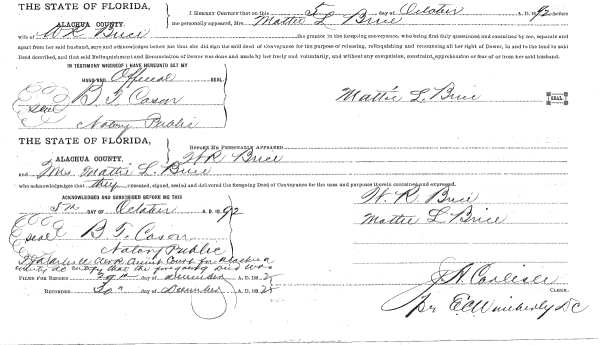 THE STATE OF FLORIDA,
ALACHUA COUNTY.
I HEREBY CERTIFY that on this 5 day of October A. D. 1892 before
me personally appeared, Mrs. Mattie L. Brice
wife of W R Brice the grantor in the foregoing conveyance, who being first duly questioned and examined by me, separate and
apart from her said husband, says and acknowledges before me that she did sign the said deed of Conveyance for the purpose of releasing, relinquishing and renouncing all her right of Dower, in and to the land in said
Deed described, and that said Relinquishment and Renunciation of Dower was done and made by her freely and voluntarily, and without any compulsion, constraint apprehension or fear of or from her said husband.
IN TESTIMONY WHEREOF I HAVE HEREUNTO SET MY
HAND AND Official
Seal B. T. Cason
Notary Public
Mattie L. Brice SEAL
THE STATE OF FLORIDA,
ALACHUA COUNTY,
BEFORE ME PERSONALLY APPEARED
W. R. Brice
and Mrs. Mattie L. Brice
who acknowledges that they executed, signed, sealed and delivered the foregoing Deed of Conveyance for the uses and purposes therein contained and expressed.
ACKNOWLEDGED AND SUBSCRIBED BEFORE ME THIS
5th DAY OF October A. D. 1892
W. R. Brice
Mattie L. Brice
Seal B. T. Cason
Notary Public
Clerk Circuit Court for Alachua
County do certify that the foregoing Deed was
FILED FOR RECORD day of December A. D. 18
RECORDED 30th day of December A. D. 18
J. A. Carlisle
CLERK.
Per E. C. Wimberly D C